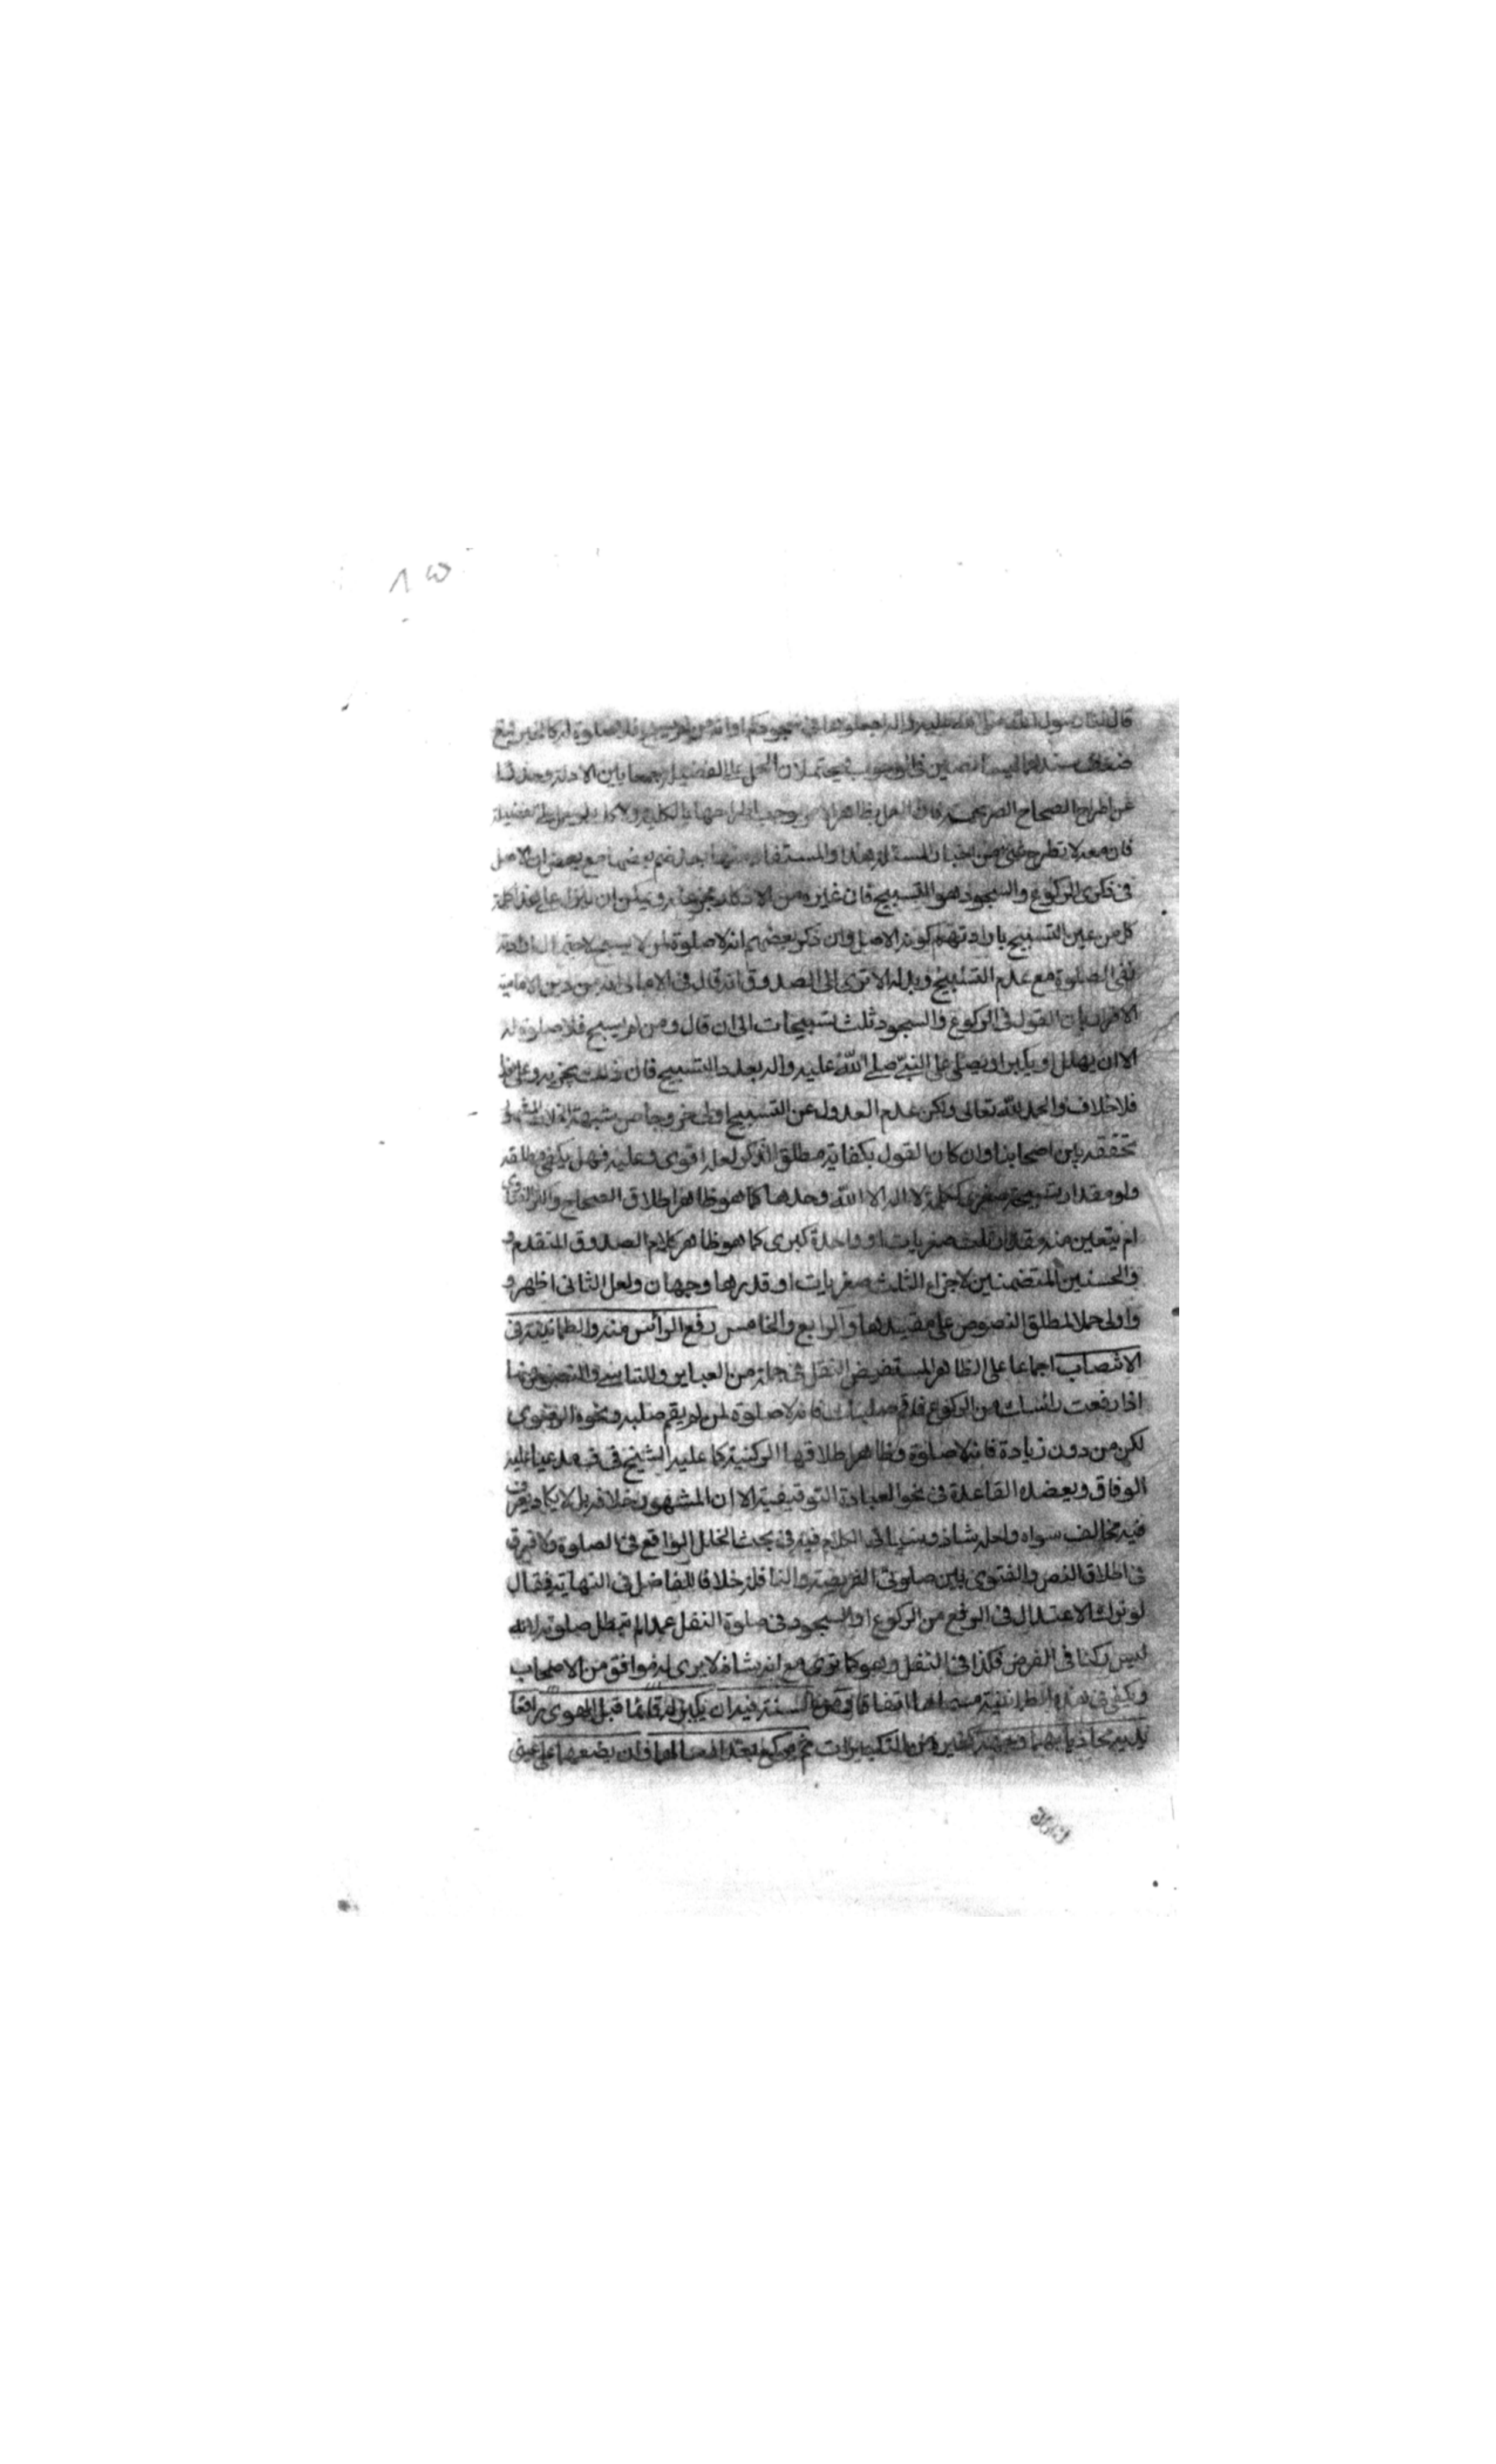 ٨٥
قال لنا رسول الله صلى الله عليه واله اجعلوها في سجودكم او انه من لم يسبح فلا صلوة له كالخبرين مع
ضعف سندهما ليسا نصين في الوجوب فيحتملان الحمل على الفضيلة جمعا بين الادلة وحذرا
عن اطراح الصحاح الصريحة فان العمل بظاهر الامر يوجب اطراحها بالكلية ولا كذلك لو حمل على الفضيلة
فان معه لا تطرح شئ من اخبار المسئلة هذا والمستفاد منها بعد ضم بعضها مع بعض ان الاصل
في ذكرى الركوع والسجود هو التسبيح فان غيره من الاذكار مجز عنه ويمكن ان ينزل على هذا كلمة
كل من عين التسبيح بارادتهم كونه الاصل وان ذكر بعضهم انه لا صلوة لمن لا يسبح لاحتمال ارادته
نفى الصلوة مع عدم التسبيح وبدله الا ترى الى الصدوق انه قال في الامالى انه من دين الامامية
الاقرار بان القول في الركوع والسجود ثلث تسبيحات الى ان قال ومن لم يسبح فلا صلوة له
الا ان يهلل او يكبر او يصلى على النبي صلى الله عليه واله بعدد التسبيح فان ذلك يجزيه وعلى هذا
فلا خلاف والحمد لله تعالى ولكن عدم العدول عن التسبيح اولى خروجا من شبهة الخلاف المشهور
تحققه بين اصحابنا وان كان القول بكفاية مطلق الذكر لعله اقوى وعليه فهل يكفى مطلقه
ولو مقدار تسبيحة صغرى ككلمة لا اله الا الله وحدها كما هو ظاهر اطلاق الصحاح واكثر الفتاوى
ام يتعين منه مقدار ثلث صغريات او واحدة كبرى كما هو ظاهر كلام الصدوق المتقدم و
والحسنين المتضمنين لاجزاء الثلث صغريات او قدرها وجهان ولعل الثانى اظهر و
واولى حملا لمطلق النصوص على مقيدها والرابع والخامس رفع الرأس منه والطمانينة في
الانتصاب اجماعا على الظاهر المستفيض النقل في جملة من العباير وللتاسى والنصوص منها
اذا رفعت رأسك من الركوع فاقم صلبك فانه لا صلوة لمن لم يقم صلبه ونحوه الرضوى
لكن من دون زيادة فانه لا صلوة وظاهر اطلاقها الركنية كما عليه الشيخ في ف مدعيا عليه
الوفاق ويعضده القاعدة في نحو العبادة التوقيفية الا ان المشهور خلافه بل لا يكاد يعرف
فيه مخالف سواه ولعله شاذ وسياتى الكلام فيه في بحث الخلل الواقع في الصلوة ولا فرق
في اطلاق النص والفتوى بين صلوتى الفريضة والنافلة خلافا للفاضل في النهاية فقال
لو ترك الاعتدال في الرفع من الركوع او السجود في صلوة النفل عمدا لم تبطل صلوته لانه
ليس ركنا في الفرض فكذا في النفل وهو كما ترى مع انه شاذ لا يرى له موافق من الاصحاب
ويكفى في هذه الطمانينة مسماها اتفاقا ومن السنة فيه ان يكبر له قائما قبل الهوى رافعا
يديه محاذيا بهما وجهه كغيره من التكبيرات ثم يركع بعد ارسالهما وان يضعهما على عينى